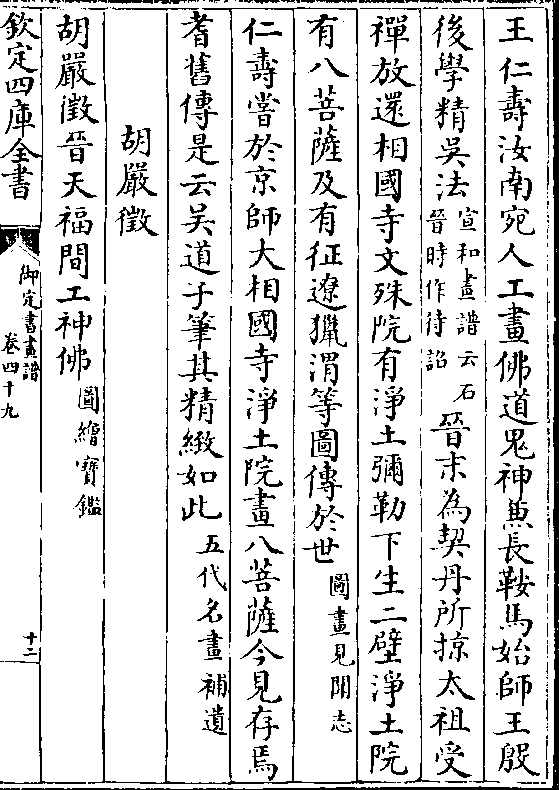 王仁壽汝南宛人工畫佛道鬼神兼長鞍馬始師王殷
後學精吳法宣和畫譜云石晉時作待詔晉末為契丹所掠太祖受
禪放還相國寺文殊院有淨土彌勒下生二壁淨土院
有八菩薩及有征遼獵渭等圖傳於世圖畫見聞志
仁壽嘗於京師大相國寺淨土院畫八菩薩今見存焉
耆舊傳是云吳道子筆其精緻如此五代名畫補遺
胡嚴徵
胡嚴徵晉天福間工神佛圖繪寶鑑
欽定四庫全書
御定書畫譜
卷四十九
十二